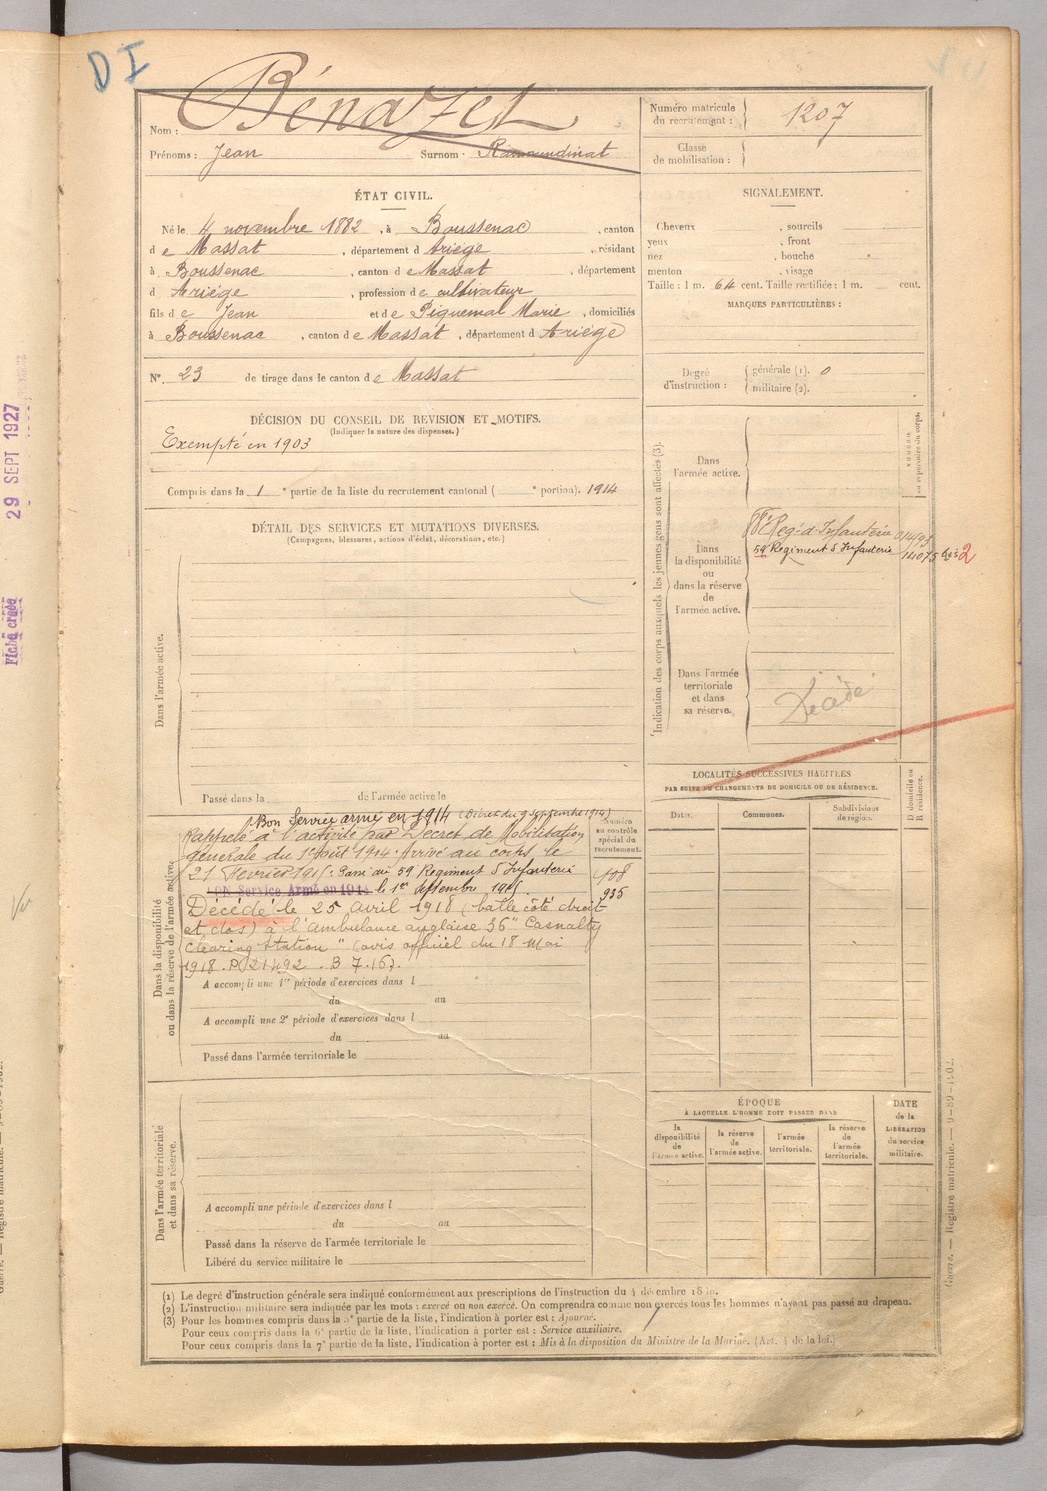 DI
Nom : Bénazet
Prénoms : Jean Surnom : Ramoundinat
Numéro matricule du recrutement : 1207
Classe de mobilisation :
ÉTAT CIVIL.
Né le 4 novembre 1882, à Boussenac, canton
de Massat, département d'Ariège, résidant
à Boussenac, canton de Massat, département
d Ariége, profession de cultivateur
fils de Jean et de Piquemal Marie, domiciliés
à Boussenac, canton de Massat, département d'Ariège
N° 23 de tirage dans le canton de Massat
SIGNALEMENT.
Cheveux , sourcils
yeux , front
nez , bouche
menton , visage
Taille : 1 m. 64 cent. Taille rectifiée : 1 m. cent.
MARQUES PARTICULIÈRES :
Degré d'instruction : générale (1). 0
militaire (2).
DÉCISION DU CONSEIL DE REVISION ET MOTIFS.
(Indiquer la nature des dispenses.)
Exempté en 1903
Compris dans la 1e partie de la liste du recrutement cantonal ( e portion). 1914
DÉTAIL DES SERVICES ET MUTATIONS DIVERSES.
(Campagnes, blessures, actions d'éclat, décorations, etc.)
Dans l'armée active.
Passé dans la de l'armée active le
Indication des corps auxquels les jeunes gens sont affectés (3).
NUMÉRO au répertoire du corps.
Dans l'armée active.
Dans la disponibilité ou dans la réserve de l'armée active.
Reg. d'Infanterie
59e Regiment d'Infanterie
2
Dans l'armée territoriale et dans sa réserve.
Décédé
LOCALITÉS SUCCESSIVES HABITÉES
PAR SUITE DE CHANGEMENTS DE DOMICILE OU DE RÉSIDENCE.
Dates. Communes. Subdivisions de région. D domicile ou R résidence.
Dans la disponibilité ou dans la réserve de l'armée active.
Numéro au contrôle spécial du recrutement.
Bon Service armé en 1914 (Décret du 9 septembre 1914)
Rappelé à l'activité par Décret de Mobilisation
générale du 1er Août 1914. Arrivé au corps le
21 février 1915. Passé au 59e Regiment d'Infanterie
BON Service Armé en 1914 le 1er Septembre 1915.
935
Décédé le 25 avril 1918 (balle côté droit
et dos) à l'ambulance anglaise 36" Casualty
clearing station" (avis officiel du 18 mai
1918. P 21492. B 7.16).
A accompli une 1re période d'exercices dans l
du au
A accompli une 2e période d'exercices dans l
du au
Passé dans l'armée territoriale le
ÉPOQUE
À LAQUELLE L'HOMME DOIT PASSER DANS
la disponibilité de l'armée active. la réserve de l'armée active. l'armée territoriale. la réserve de l'armée territoriale.
DATE de la LIBÉRATION du service militaire.
Dans l'armée territoriale et dans sa réserve.
A accompli une période d'exercices dans l
du au
Passé dans la réserve de l'armée territoriale le
Libéré du service militaire le
(1) Le degré d'instruction générale sera indiqué conformément aux prescriptions de l'instruction du 4 décembre
(2) L'instruction militaire sera indiquée par les mots : exercé ou non exercé. On comprendra comme non exercés tous les hommes n'ayant pas passé au drapeau.
(3) Pour les hommes compris dans la 5e partie de la liste, l'indication à porter est : Ajourné.
Pour ceux compris dans la 6e partie de la liste, l'indication à porter est : Service auxiliaire.
Pour ceux compris dans la 7e partie de la liste, l'indication à porter est : Mis à la disposition du Ministre de la Marine. (Art. 4 de la loi.)
29 SEPT 1927
Fiche créée
Guerre. — Registre matricule. — 9-89-1902.